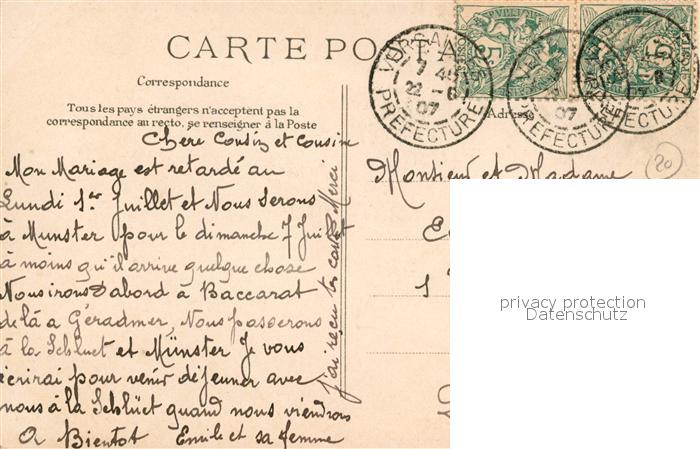 CARTE POSTALE
Correspondance
Tous les pays étrangers n'acceptent pas la
correspondance au recto, se renseigner à la Poste
Chère Cousin et Cousine
Mon Mariage est retardé au
Lundi 1er Juillet et Nous serons
à Munster pour le dimanche 7 Juillet
à moins qu'il arrive quelque chose
Nous irons d'abord à Baccarat
de là a Géradmer, Nous passerons
à la Schluct et Münster Je vous
écrirai pour venir déjeuner avec
nous à la Schlüct quand nous viendrons
A Bientot Emile et sa femme
j'ai reçu tes cartes Merci
VERSAILLES
7 45
22 - 6
07
PREFECTURE
07
PREFECTURE
PREFECTURE
5
5
Adresse
20
Monsieur et Madame
1
privacy protection
Datenschutz